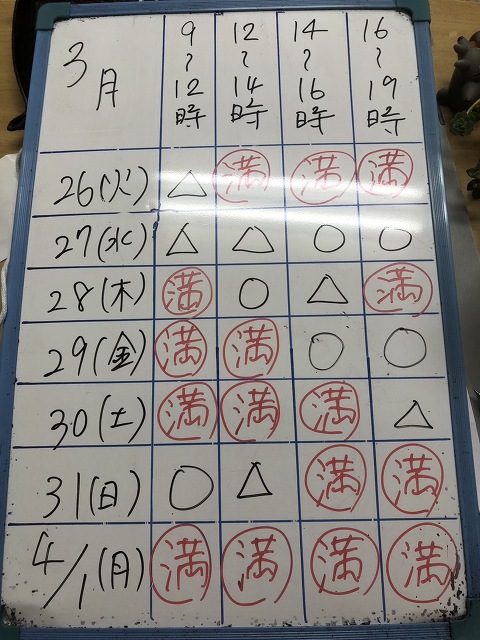 3月 9~12時 12~14時 14~16時 16~19時
26(火) △ 満 満 満
27(水) △ △ ○ ○
28(木) 満 ○ △ 満
29(金) 満 満 ○ ○
30(土) 満 満 満 △
31(日) ○ △ 満 満
4/1(月) 満 満 満 満